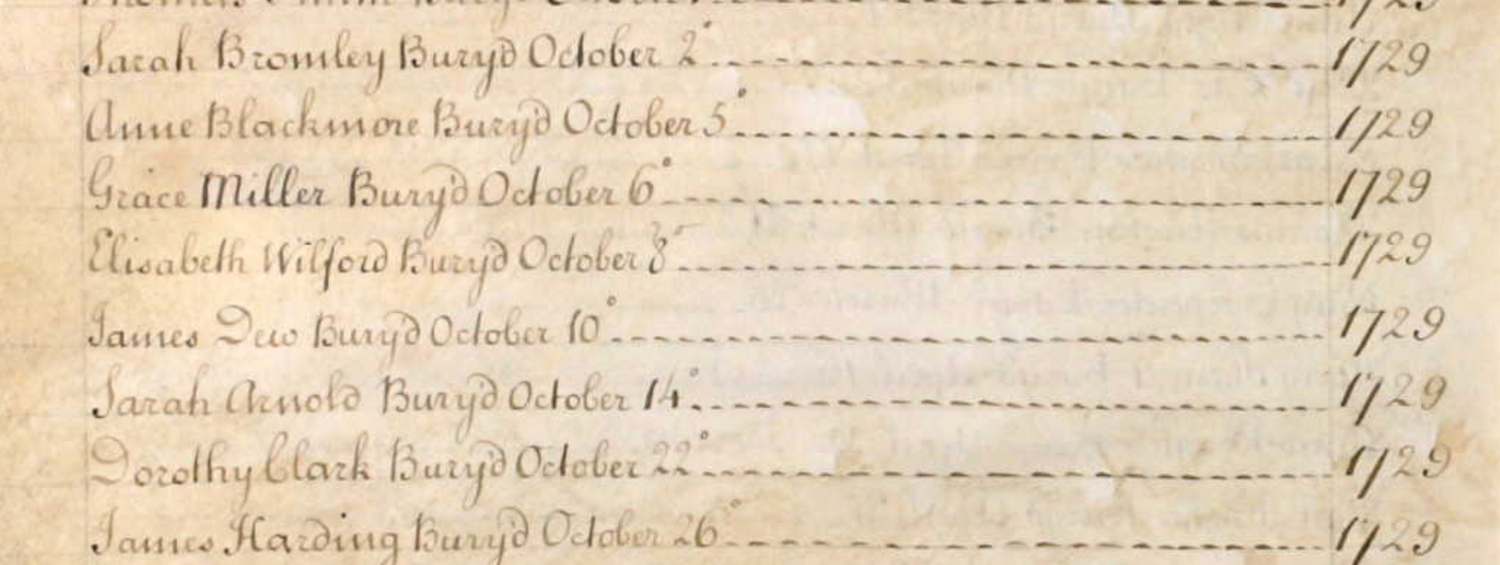 Sarah Bromley Buryd October 2° 1729
Anne Blackmore Buryd October 5° 1729
Grace Miller Buryd October 6° 1729
Elisabeth Wilford Buryd October 8° 1729
James Dew Buryd October 10° 1729
Sarah Arnold Buryd October 14° 1729
Dorothy Clark Buryd October 22° 1729
James Harding Buryd October 26° 1729